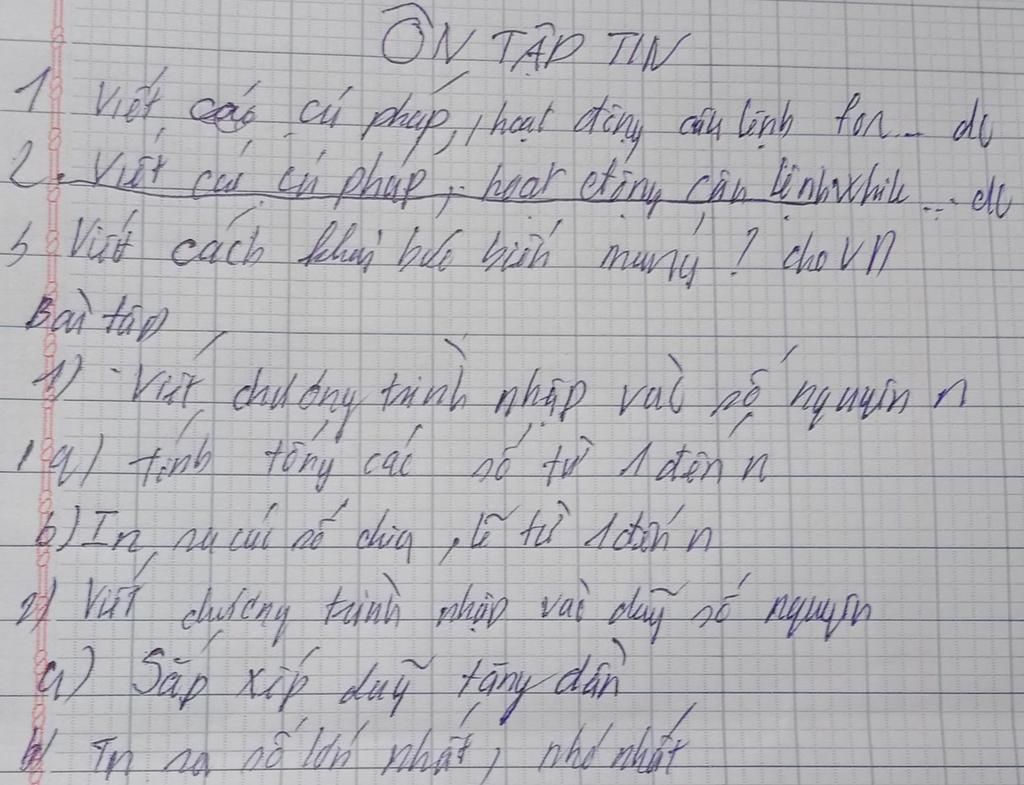 ÔN TẬP TIN
1 Viết các cú pháp, hoạt động câu lệnh for... do
2. Viết các cú pháp, hoạt động câu lệnh while... do
3 Viết cách khai báo biến mảng? cho VD
Bài tập
1) Viết chương trình nhập vào số nguyên n
a) tính tổng các số từ 1 đến n
b) In ra các số chia, lẽ từ 1 đến n
2) Viết chương trình nhập vào dãy số nguyên
a) Sắp xếp dãy tăng dần
b) In ra số lớn nhất, nhỏ nhất